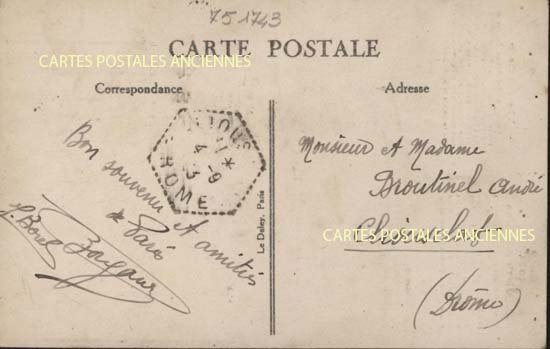 751743
CARTE POSTALE
CARTES POSTALES ANCIENNES
Correspondance
Adresse
4-9
ROME
Bon souvenir et amitiés
de Paris
Le Deley, Paris
Monsieur et Madame
Broutinel André
CARTES POSTALES ANCIENNES
(Drôme)